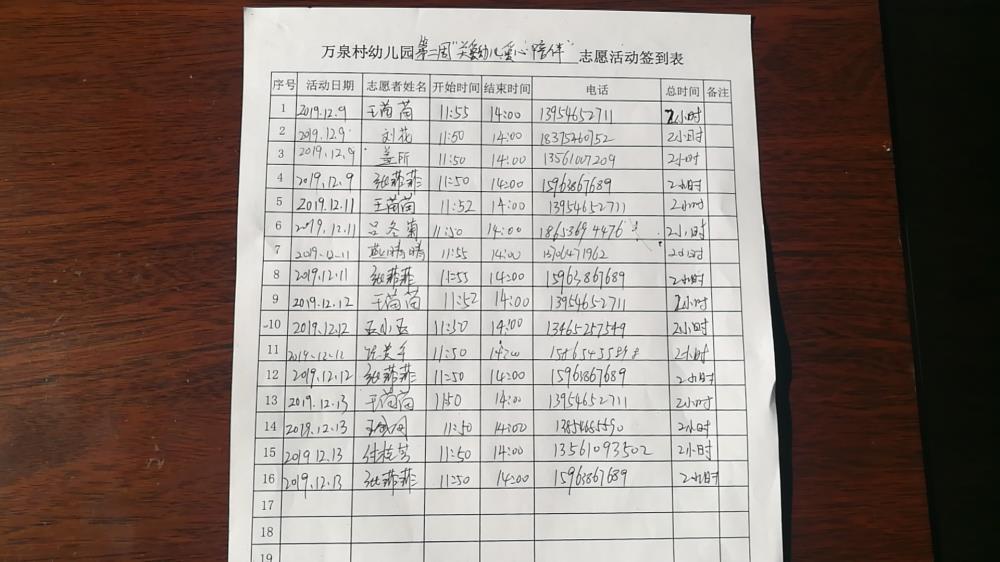 万泉村幼儿园第二周"关爱幼儿爱心陪伴"志愿活动签到表
序号 活动日期 志愿者姓名 开始时间 结束时间 电话 总时间 备注
1 2019.12.9 王茵茵 11:55 14:00 13954652711 2小时
2 2019.12.9 刘花 11:50 14:00 18375260752 2小时
3 2019.12.9 11:50 14:00 13561007209 2小时
4 2019.12.9 张菲菲 11:50 14:00 15963867689 2小时
5 2019.12.11 王茵茵 11:52 14:00 13954652711 2小时
6 2019.12.11 吕冬菊 11:50 14:00 18653694476 2小时
7 2019.12.11 晴晴 11:55 14:00 13706471962 2小时
8 2019.12.11 张菲菲 11:55 14:00 15963867689 2小时
9 2019.12.12 王茵茵 11:52 14:00 13954652711 2小时
10 2019.12.12 王小玉 11:50 14:00 13465257549 2小时
11 2019.12.12 11:50 14:00 2小时
12 2019.12.12 张菲菲 11:50 14:00 15963867689 2小时
13 2019.12.13 王茵茵 11:50 14:00 13954652711 2小时
14 2019.12.13 11:50 14:00 13854655590 2小时
15 2019.12.13 付桂芳 11:50 14:00 13561093502 2小时
16 2019.12.13 张菲菲 11:50 14:00 15963867689 2小时
17
18
19